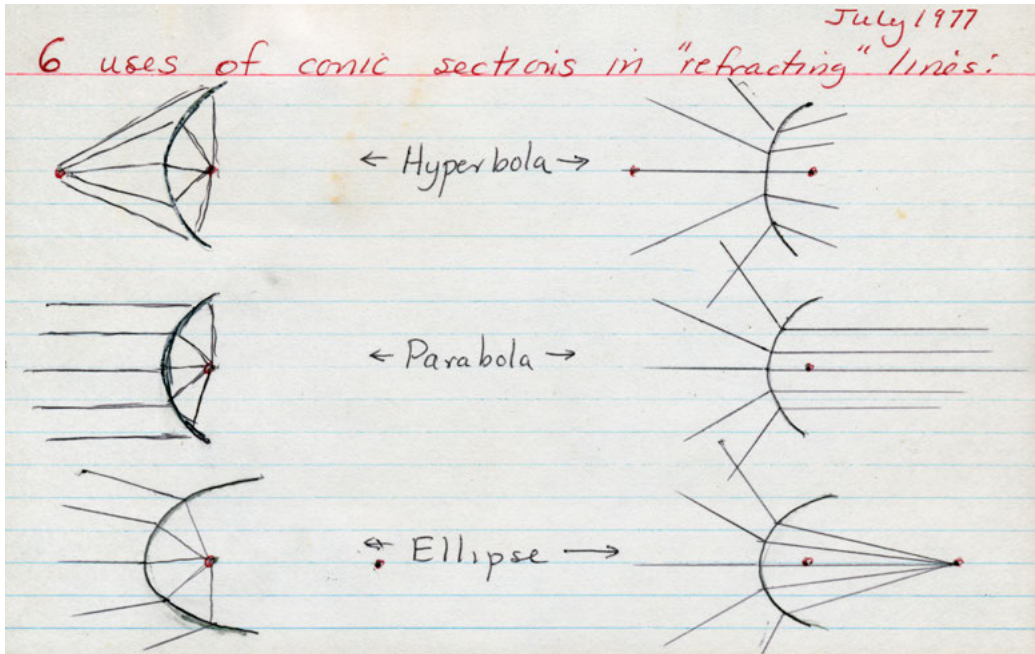 July 1977
6 uses of conic sections in "refracting" lines:
← Hyperbola →
← Parabola →
← Ellipse →